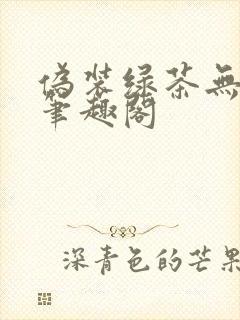 伪装绿茶無
笔趣阁
深青色的芒果